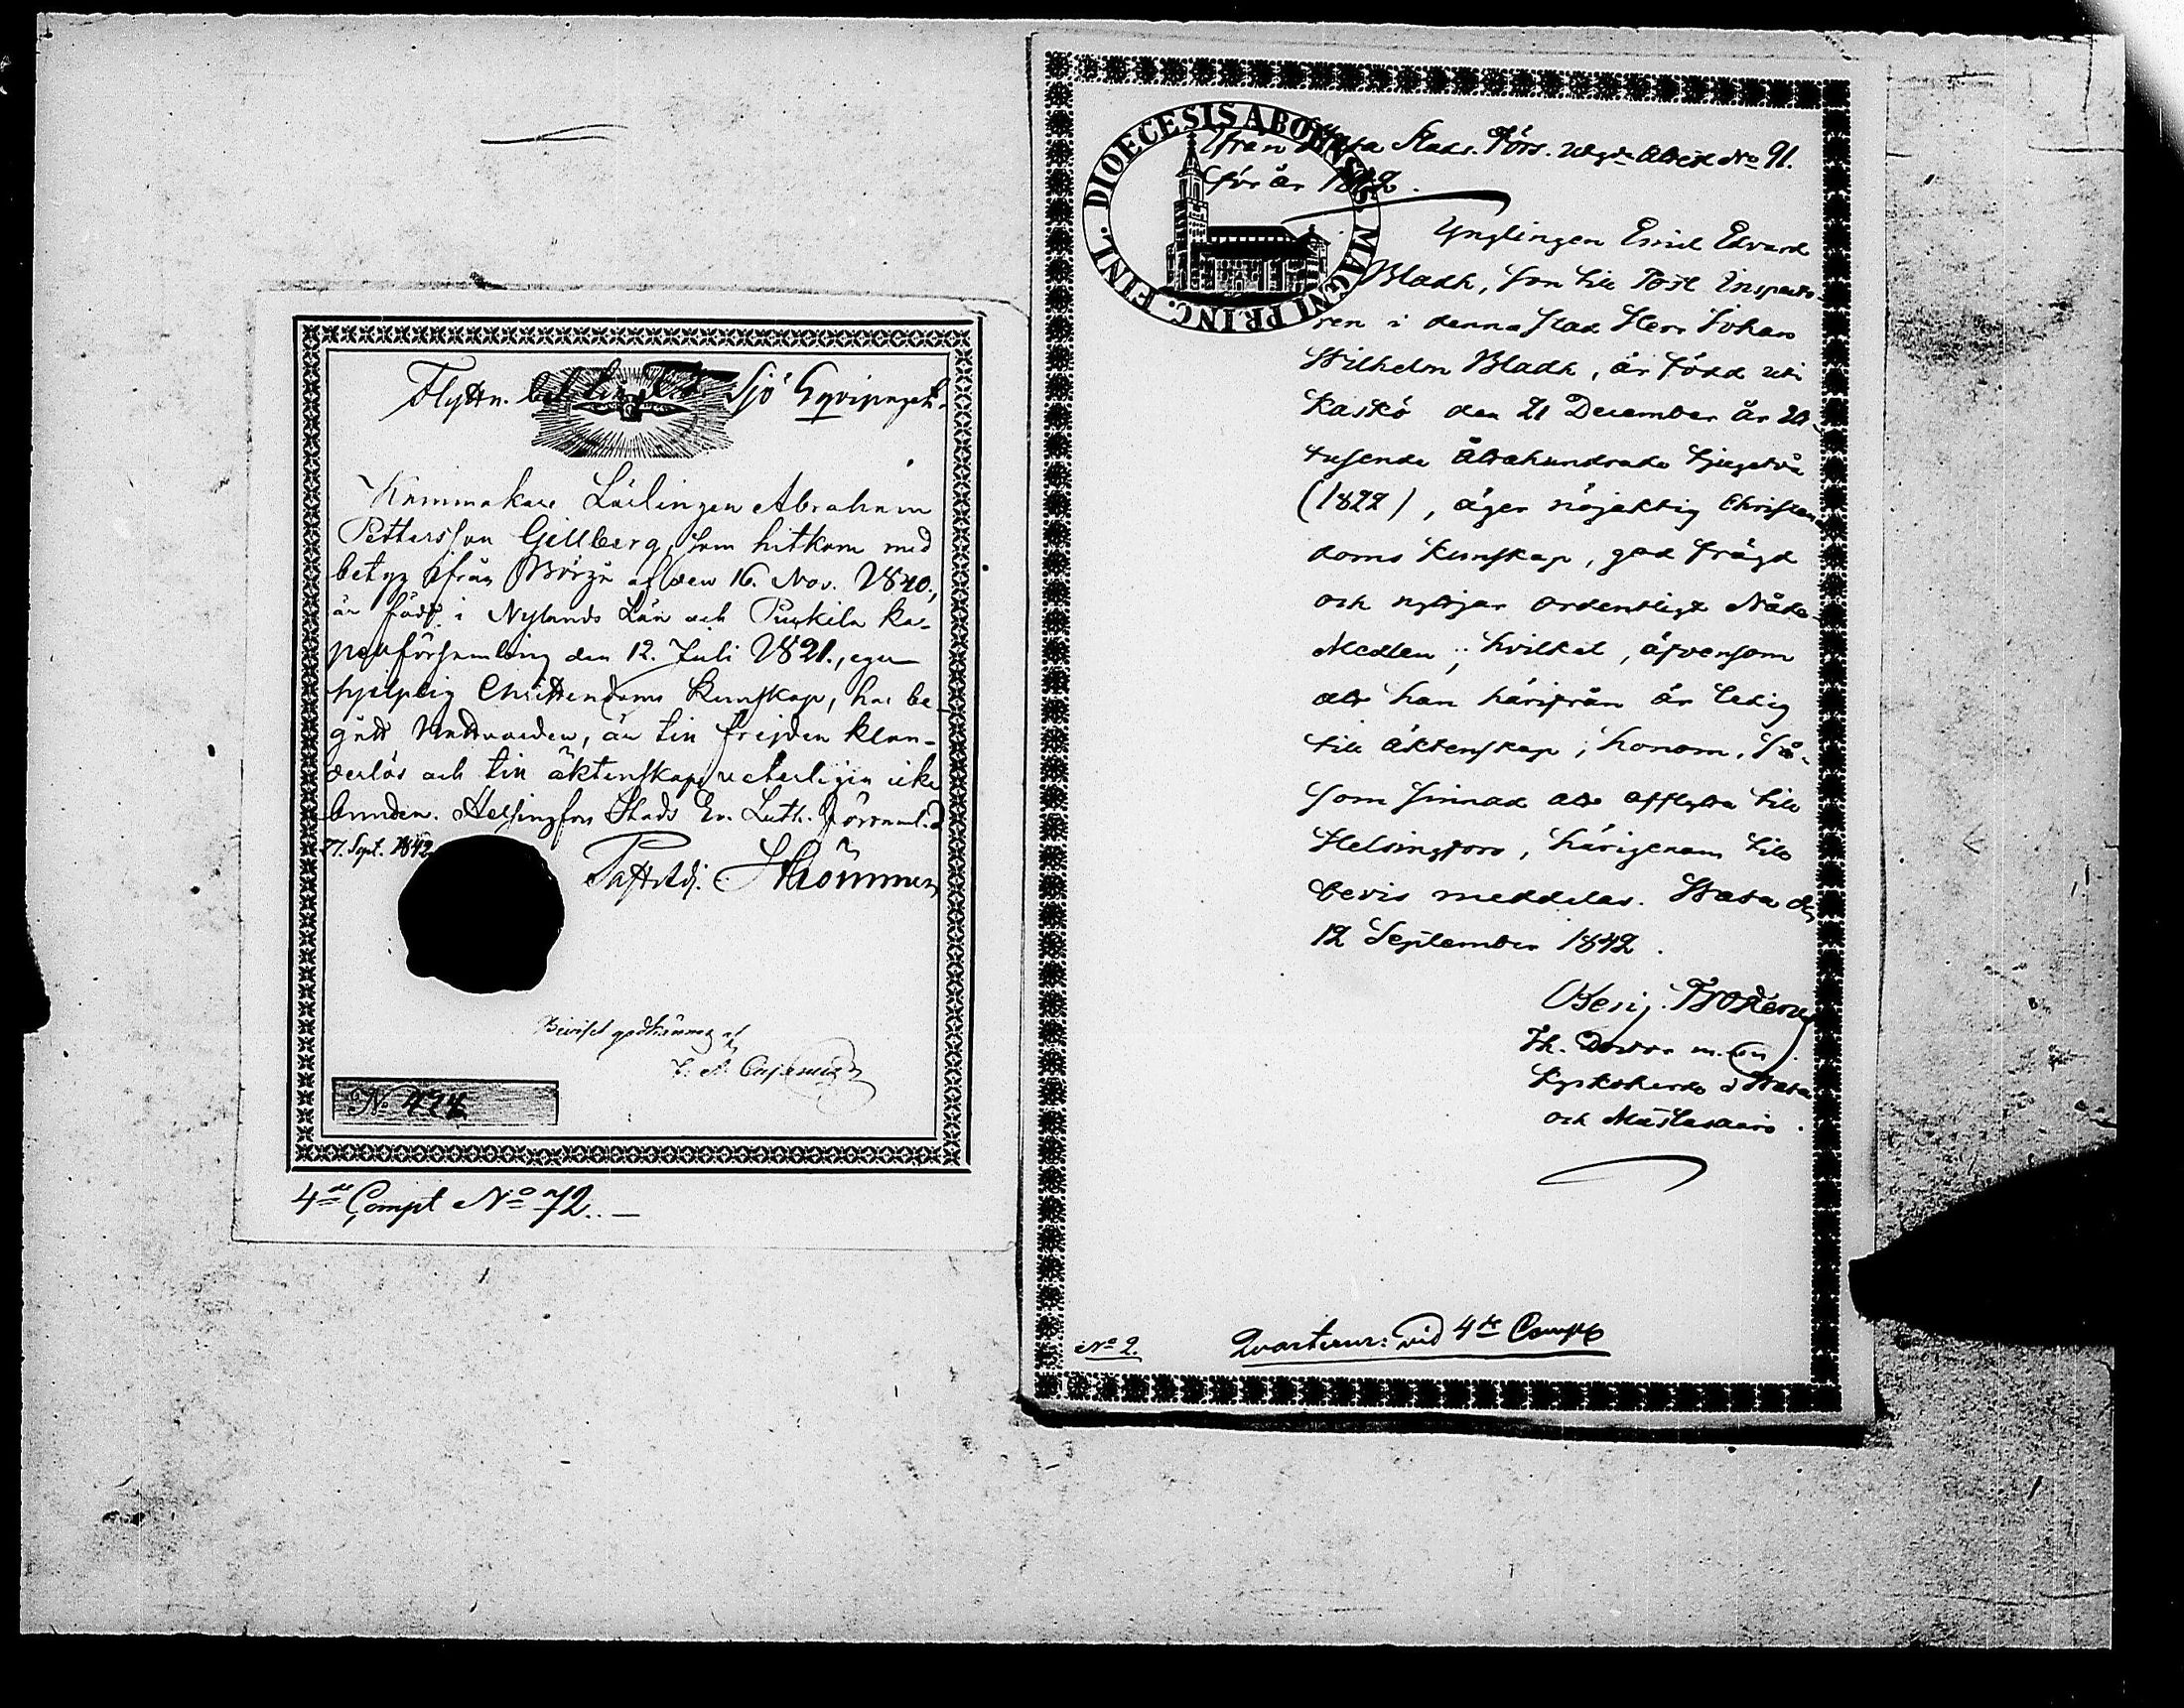 Flyttn. bet. till Sjö Eqvipaget.
Kammakare Lärlingen Abraham
Pettersson Gellberg, som hitkom med
betyg ifrån Börgå af den 16. Nov. 1840.,
är född i Nylands Län och Puckila ka-
pellförsamling den 12. Juli 1821., eger
hjelplig Christendoms kunskap, har be-
gått Nattvarden, är till frejden klan-
derlös och till äktenskap veterligen icke
bunden. Helsingfors Stads Ev. Luth. Församl. d
27. Sept. 1842
Past. Adj. Strömmer
Beviset godkännes af
No 424
4de Compt No 72.
DIOECESIS ABOENSIS MAGNI PRINC. FINL.
Ifrån Wasa Stads Förs. utgår Attest No 91.
för år 1842.
Ynglingen Emil Edvard
Bladh, son till Post Inspecto-
ren i denna stad Herr Johan
Wilhelm Bladh, är född uti
Kaskö den 21 December år Et-
tusende Åttahundrade tjugetvå
(1822), äger nöjaktig Christen-
doms kunskap, god frägd
och nyttjar ordentligt Nåde-
Medlen; hvilket, äfvensom
att han härifrån är ledig
till äktenskap; honom, så-
som sinnad att afflytta till
Helsingfors, härigenom till
bevis meddelas. Wasa d.
12 September 1842.
Benj. Frosterus
Th. Doctor m.m.
Kyrkoherde i Wasa
och Mustasaari.
No 2.
Qvarteras: vid 4de Compt